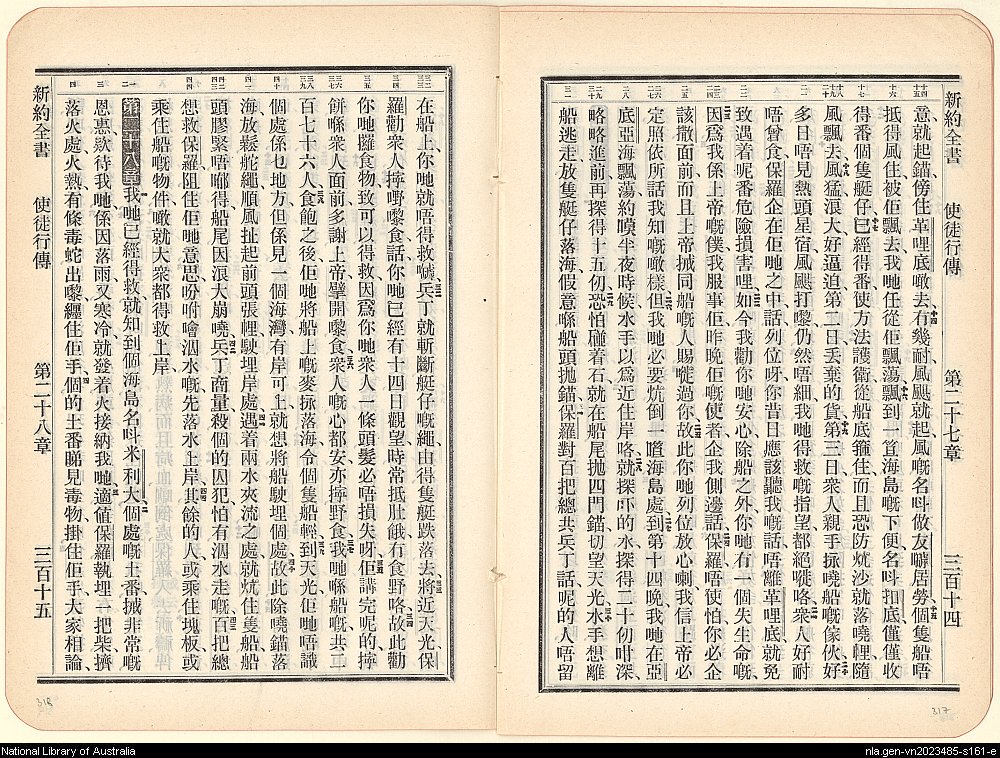 新約全書 使徒行傳 第二十七章 三百十四
意就起錨傍住革哩底噉去有幾耐風颶就起風嘅名呌做友囉居勞個隻船唔
抵得風住被佢飄去我哋任從佢飄蕩飄到一笪海島嘅下便名呌扣底僅僅收
得番個隻艇仔已經得番使方法護衛從船底箍住而且恐防烷沙就落曉𢃇隨
風飄去風猛浪大好逼迫第二日丟棄的貨第三日衆人親手掠曉船嘅傢伙好
多日唔見熱頭星宿風颶打嚟仍然唔細我哋得救嘅指望都絕嘥咯衆人好耐
唔曾食保羅企在佢哋之中話列位呀你昔日應該聽我嘅話唔離革哩底就免
致遇着呢番危險損害哩如今我勸你哋安心除船之外你哋有一個失生命嘅
因爲我係上帝嘅僕我服事佢昨晚佢嘅使者企我側邊話保羅唔使怕你必企
該撒面前而且上帝搣同船嘅人賜嘥過你故此你哋列位放心喇我信上帝必
定照依所話我知嘅噉樣但我哋必要烷倒一笪海島處到第十四晚我哋在亞
底亞海飄蕩約嘆半夜時候水手以爲近住岸咯就探吓的水探得二十仞咁深
略略進前再探得十五仞恐怕碰着石就在船尾拋四門錨切望天光水手想離
船逃走放隻艇仔落海假意喺船頭拋錨保羅對百把總共兵丁話呢的人唔留
在船上你哋就唔得救嘅兵丁就斬斷艇仔嘅繩由得隻艇跌落去將近天光保
羅勸衆人擰嘢嚟食話你哋已經有十四日觀望時常抵肚餓冇食野咯故此勸
你哋囉食物致可以得救因爲你哋衆人一條頭髮必唔損失呀佢講完呢的擰
餅喺衆人面前多謝上帝擘開嚟食衆人嘅心都安亦擰野食我哋喺船嘅共二
百七十六人食飽之後佢哋將船上嘅麥掠落海令個隻船輕到天光佢哋唔識
個處係乜地方但係見一個海灣有岸可上就想將船駛埋個處故此除曉錨落
海放鬆舵繩順風扯起前頭張𢃇駛埋岸處遇着兩水夾流之處就烷住隻船船
頭膠緊唔郁得船尾因浪大崩曉兵丁商量殺個的囚犯怕有泅水走嘅百把總
想救保羅阻住佢哋意思吩咐噲泅水嘅先落水上岸其餘的人或乘住塊板或
乘住船嘅物件噉就大衆都得救上岸
第二十八章我哋已經得救就知到個海島名呌米利大個處嘅土番搣非常嘅
恩惠欵待我哋係因落雨又寒冷就發着火接納我哋適值保羅執埋一把柴擠
落火處火熱有條毒蛇出嚟纒住佢手個的土番睇見毒物掛住佢手大家相論
新約全書 使徒行傳 第二十八章 三百十五
317
318
National Library of Australia
nla.gen-vn2023485-s161-e